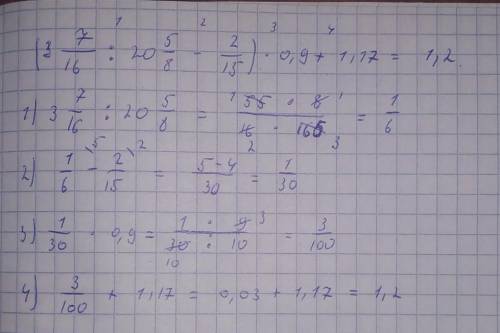 1 2 3 4
(3 7/16 : 20 5/8 - 2/15) · 0,9 + 1,17 = 1,2.
1) 3 7/16 : 20 5/8 = (¹55 · 8¹)/(16₂ · 165₃) = 1/6
2) 1/6^\5 - 2/15^\2 = (5-4)/30 = 1/30
3) 1/30 · 0,9 = (1 · 9³)/(30₁₀ · 10) = 3/100
4) 3/100 + 1,17 = 0,03 + 1,17 = 1,2